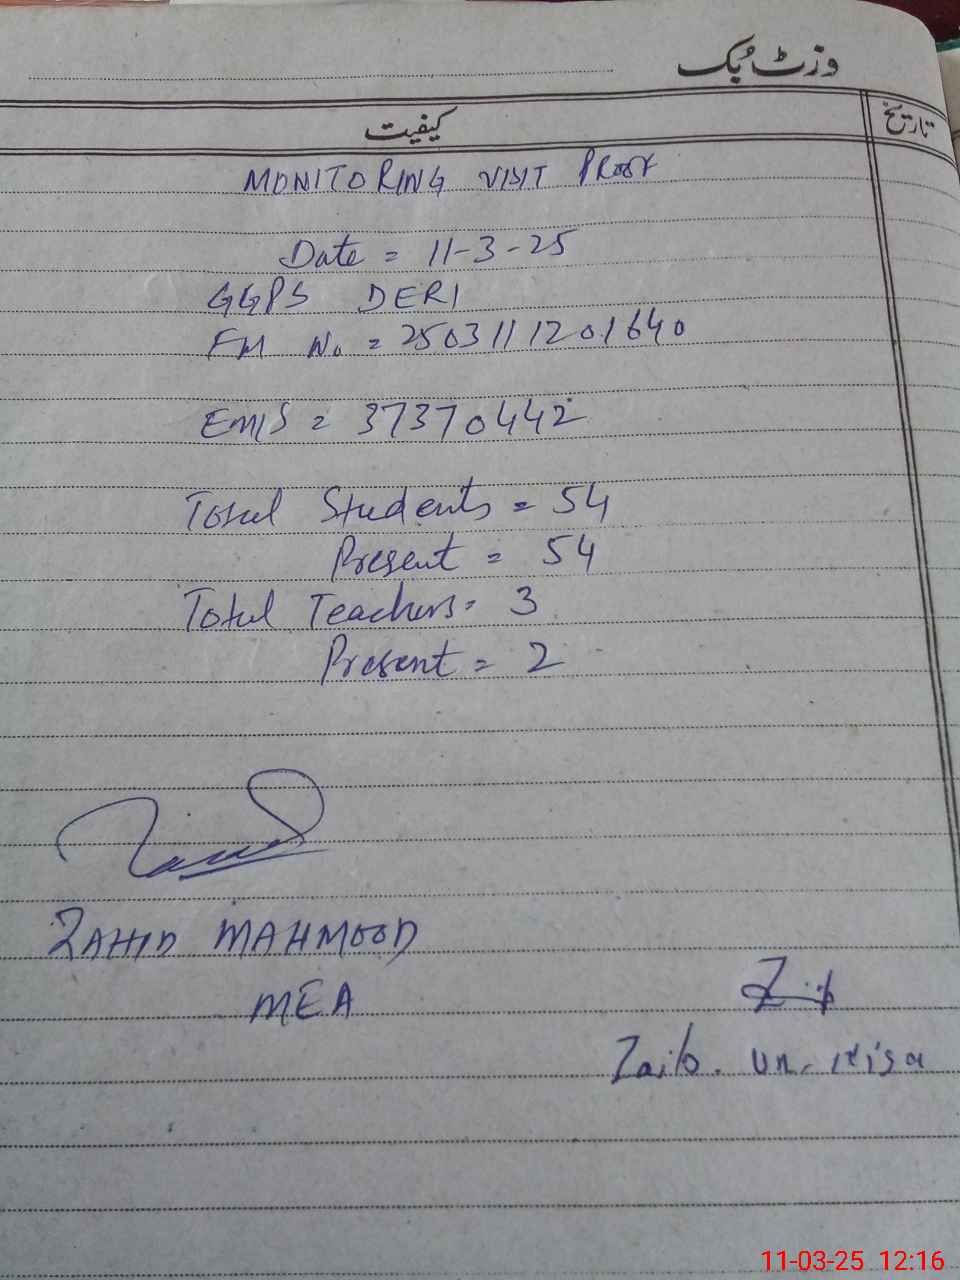 وزٹ بُک
تاریخ
کیفیت
MONITORING VISIT PROOF
Date = 11-3-25
GGPS DERI
FM No = 2503111201640
EMIS = 37370442
Total Students = 54
Present = 54
Total Teachers = 3
Present = 2
ZAHID MAHMOOD
MEA
Zaib. un. Nisa
11-03-25 12:16